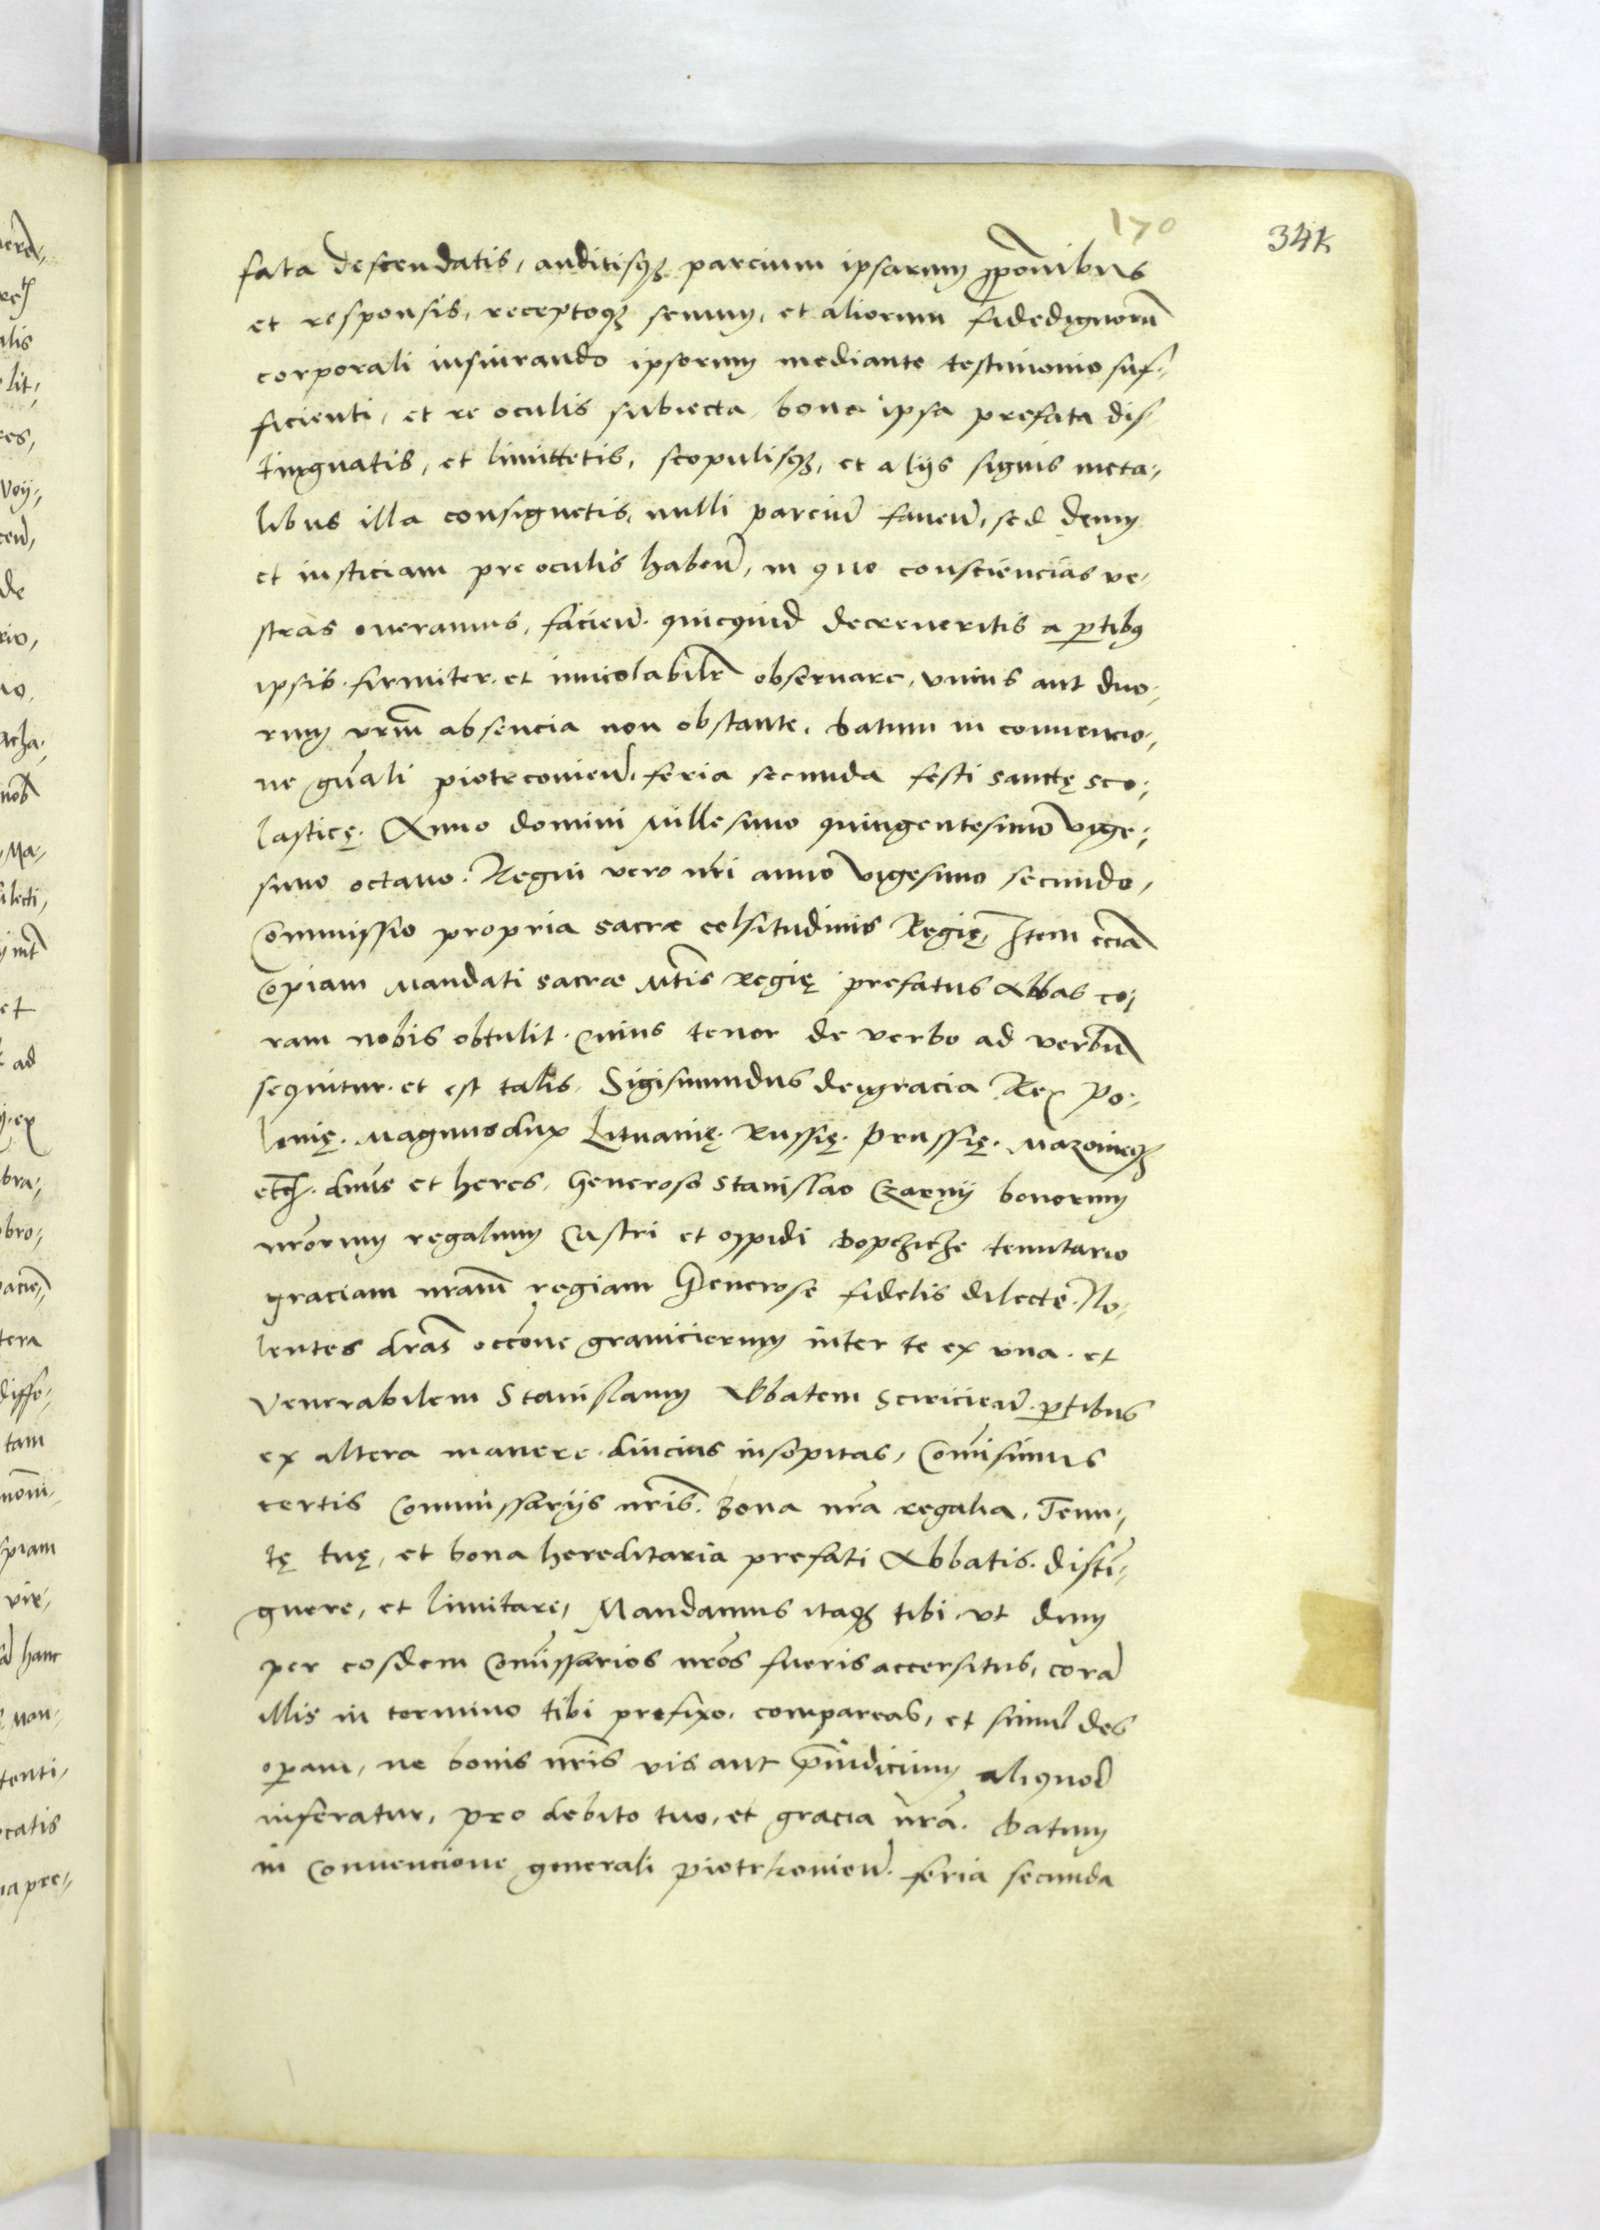 170
341
fata descendatis, auditisq₃ parcium ipsarum ꝓpōnibus
et responsis, receptoq₃ senum, et aliorum fidedignorū
corporali iusiurando ipsorum mediante testimonio suf-
ficienti, et re oculis subiecta, bona ipsa prefata dis
tinguatis, et limittetis, scopulisq₃, et alijs signis meta-
libus illa consignetis, nulli parciū fauen̄, sed deum
et iusticiam pre oculis haben̄, in quo consciencias ve-
stras oneramus, facien̄ quicquid decreueritis a ꝑtibus
ipsis firmiter et inuiolabilr̄ obseruare, vnius aut duo-
rum vrm̄ absencia non obstante. Datum in conuencio-
ne gn̄ali piotrcouien̄, feria secunda festi sanctę sco-
lasticę. Anno domini Millesimo quingentesimo vige-
simo octauo. Regni vero nr̄i anno vigesimo secundo,
Commissio propria sacræ celsitudinis Regię, Item eciā
Copiam Mandati sacræ Mt̄is Regię prefatus Abbas co-
ram nobis obtulit. Cuius tenor de verbo ad verbū
sequitur et est talis. Sigismundus dei gracia Rex Po-
lonię. Magnus dux Lituanię. Russię. Prussię. Mazouieq₃
etc̄. dn̄us et heres. Generoso Stanislao Czarnij bonorum
nr̄orum regalium Castri et oppidi Dopchicze tenutario
graciam nr̄am regiam Generose fidelis dilecte. No-
lentes dr̄as occōne graniciorum inter te ex vna et
Venerabilem Stanislaum Abbatem Sciricien̄. ꝑtibus
ex altera manere diucius insopitas, Com̄isimus
certis Commissarijs nr̄is. Bona nr̄a regalia, Tenu-
tę tuę, et bona hereditaria prefati Abbatis. distī-
guere, et limitare, Mandamus itaq₃ tibi vt dum
per eosdem Com̄issarios nr̄os fueris accersitus, corā
illis in termino tibi prefixo, compareas, et simul des
oꝑam, ne bonis nr̄is vis aut p̄iudicium aliquod
inferatur, pro debito tuo, et gracia nr̄a. Datum
in Conuencione generali piotrkouien̄. feria secunda